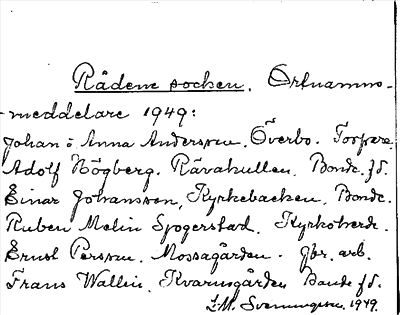 Rådene socken. Ortnamns-
meddelare 1949:
Johan o. Anna Andersson. Överbo. Torpare.
Adolf Högberg. Rävakullen. Bonde. f.d.
Einar Johansson, Kyrkebacken, Bonde.
Ruben Melin Sjogerstad. Kyrkoherde.
Ernst Persson. Mossagården. jbr. arb.
Frans Wallin. Kvarnsgården Bonde f.d.
L.M. Svenungsson. 1949.